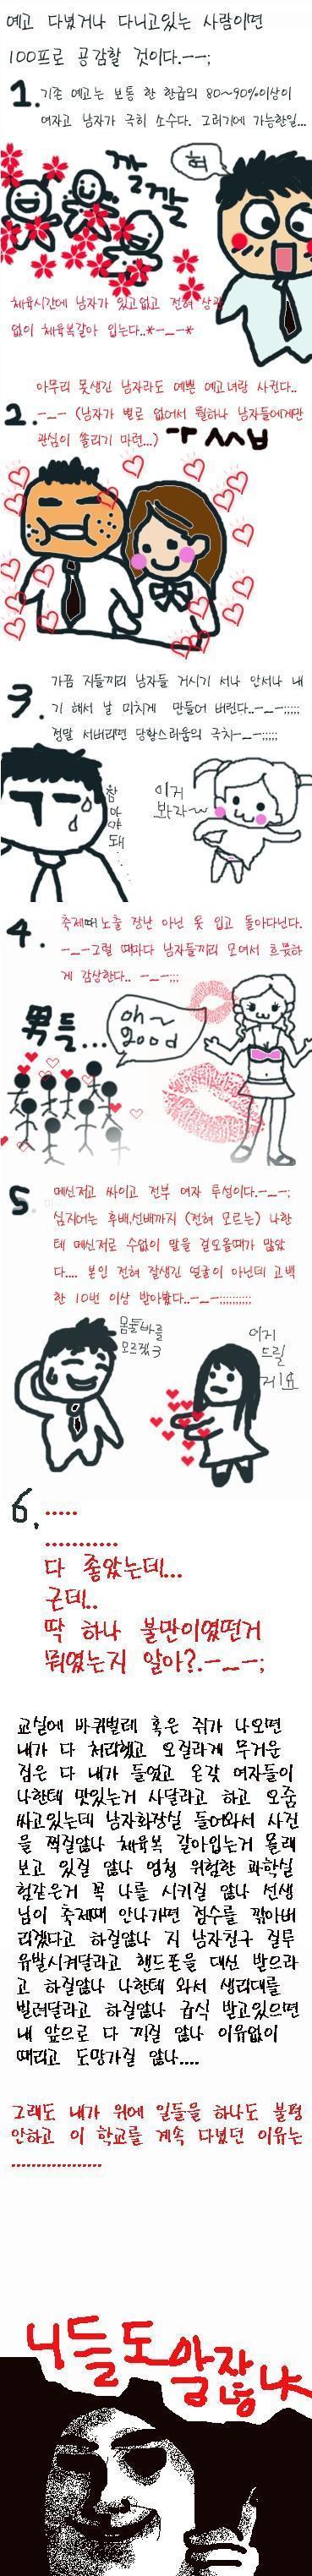 예고 다녔거나 다니고있는 사람이면
100프로 공감할 것이다.ㅡㅡ;
1. 기존 예고는 보통 한 학급의 80~90%이상이
여자고 남자가 극히 소수다. 그러기에 가능한일...
헉
깔깔
체육시간에 남자가 있고없고 전혀 상관
없이 체육복갈아 입는다..*ㅡ_ㅡ*
아무리 못생긴 남자라도 예쁜 예고녀랑 사귄다..
2. ㅡ_ㅡ (남자가 별로 없어서 뭘하나 남자들에게만
관심이 쏠리기 마련...)
3. 가끔 지들끼리 남자들 거시기 서나 안서나 내
기 해서 날 미치게 만들어 버린다..ㅡ_ㅡ;;;;;
정말 서버리면 당황스러움의 극치ㅡ_ㅡ;;;;;
참아야돼....
이거
봐라~
4. 축제때 노출 장난 아닌 옷 입고 돌아다닌다.
ㅡ_ㅡ그럴 때마다 남자들끼리 모여서 흐뭇하
게 감상한다.. ㅡ_ㅡ;;;
男들...
oh~
good
5. 메신저고 싸이고 전부 여자 투성이다.ㅡ_ㅡ;
심지어는 후배,선배까지 (전혀 모르는) 나한
테 메신저로 수없이 말을 걸오올때가 많았
다.... 본인 전혀 잘생긴 얼굴이 아닌데 고백
한 10번 이상 받아봤다..ㅡ_ㅡ;;;;;;;;;;
몸둘바를
모르겠ㅋ
드릴
게요
6. .....
...........
다 좋았는데...
근데..
딱 하나 불만이였떤거
뭐였는지 알아?.ㅡ_ㅡ;
교실에 바퀴벌레 혹은 쥐가 나오면
내가 다 처리했고 오질라게 무거운
짐은 다 내가 들었고 온갖 여자들이
나한테 맛있는거 사달라고 하고 오줌
싸고있는데 남자화장실 들어와서 사진
을 찍질않나 체육복 갈아입는거 몰래
보고 있질 않나 엄청 위험한 과학실
험같은거 꼭 나를 시키질 않나 선생
님이 축제때 안나가면 점수를 깎아버
리겠다고 하질않나 지 남자친구 질투
유발시켜달라고 핸드폰을 대신 받으라
고 하질않나 나한테 와서 생리대를
빌려달라고 하질않나 급식 받고있으면
내 앞으로 다 끼질 않나 이유없이
때리고 도망가질 않나....
그래도 내가 위에 일들을 하나도 불평
안하고 이 학교를 계속 다녔던 이유는
..................
니들도알잖냐